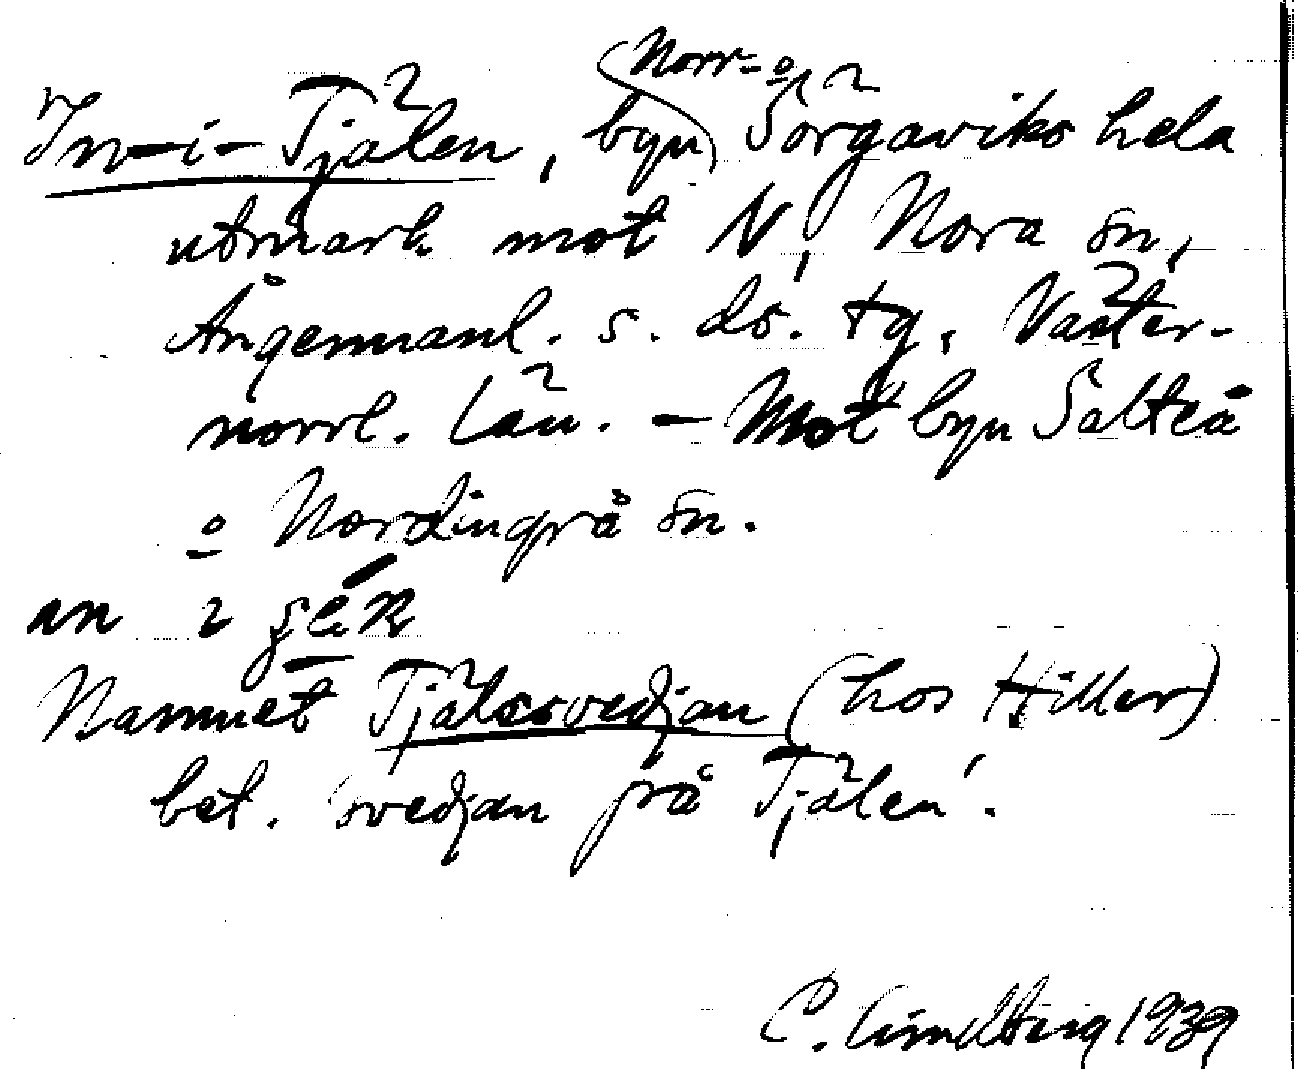 Norr- o
In-i-Tjälen, byn Sörgaviks hela
utmark mot N, Nora sn,
Ångermanl. s. ds. tg, Väster-
norrl. län. - Mot byn Salteå
o Nordingrå sn.
an i
Namnet Tjälsvedjan (hos Hiller)
bet. 'svedjan på Tjälen'.
C. Lindberg 1939